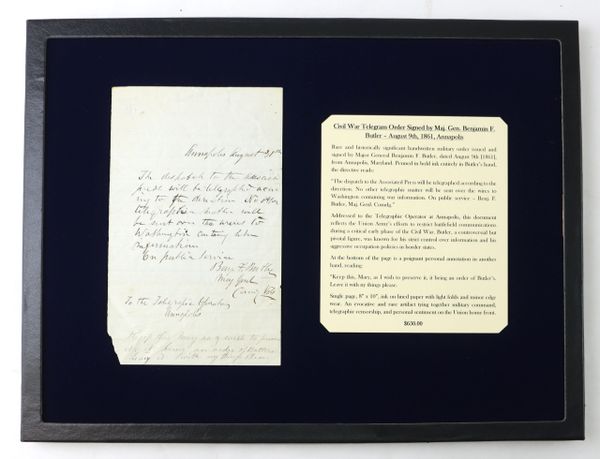 Annapolis August 31st
The dispatch to the associated
press will be telegraphed accord
ing to the direction No other
telegraphic matter will
be sent over the wires to
Washington containing
information
On public service
Benj F Butler
Maj Genl
Comdg
To the Telegraphic Operator
Annapolis
Keep this Mary as I wish to preserve
it being an order of Butlers
it with my things
Civil War Telegram Order Signed by Maj. Gen. Benjamin F.
Butler – August 9th, 1861, Annapolis
Rare and historically significant handwritten military order issued and
signed by Major General Benjamin F. Butler, dated August 9th [1861],
from Annapolis, Maryland. Penned in bold ink entirely in Butler's hand,
the directive reads:
"The dispatch to the Associated Press will be telegraphed according to the
direction. No other telegraphic matter will be sent over the wires to
Washington containing war information. On public service – Benj. F.
Butler, Maj. Genl. Comdg."
Addressed to the Telegraphic Operator at Annapolis, this document
reflects the Union Army's efforts to restrict battlefield communications
during a critical early phase of the Civil War. Butler, a controversial but
pivotal figure, was known for his strict control over information and his
aggressive occupation policies in border states.
At the bottom of the page is a poignant personal annotation in another
hand, reading:
"Keep this, Mary, as I wish to preserve it, it being an order of Butler's.
Leave it with my things please.
Single page, 8" x 10", ink on lined paper with light folds and minor edge
wear. An evocative and rare artifact tying together military command,
telegraphic censorship, and personal sentiment on the Union home front.
$650.00